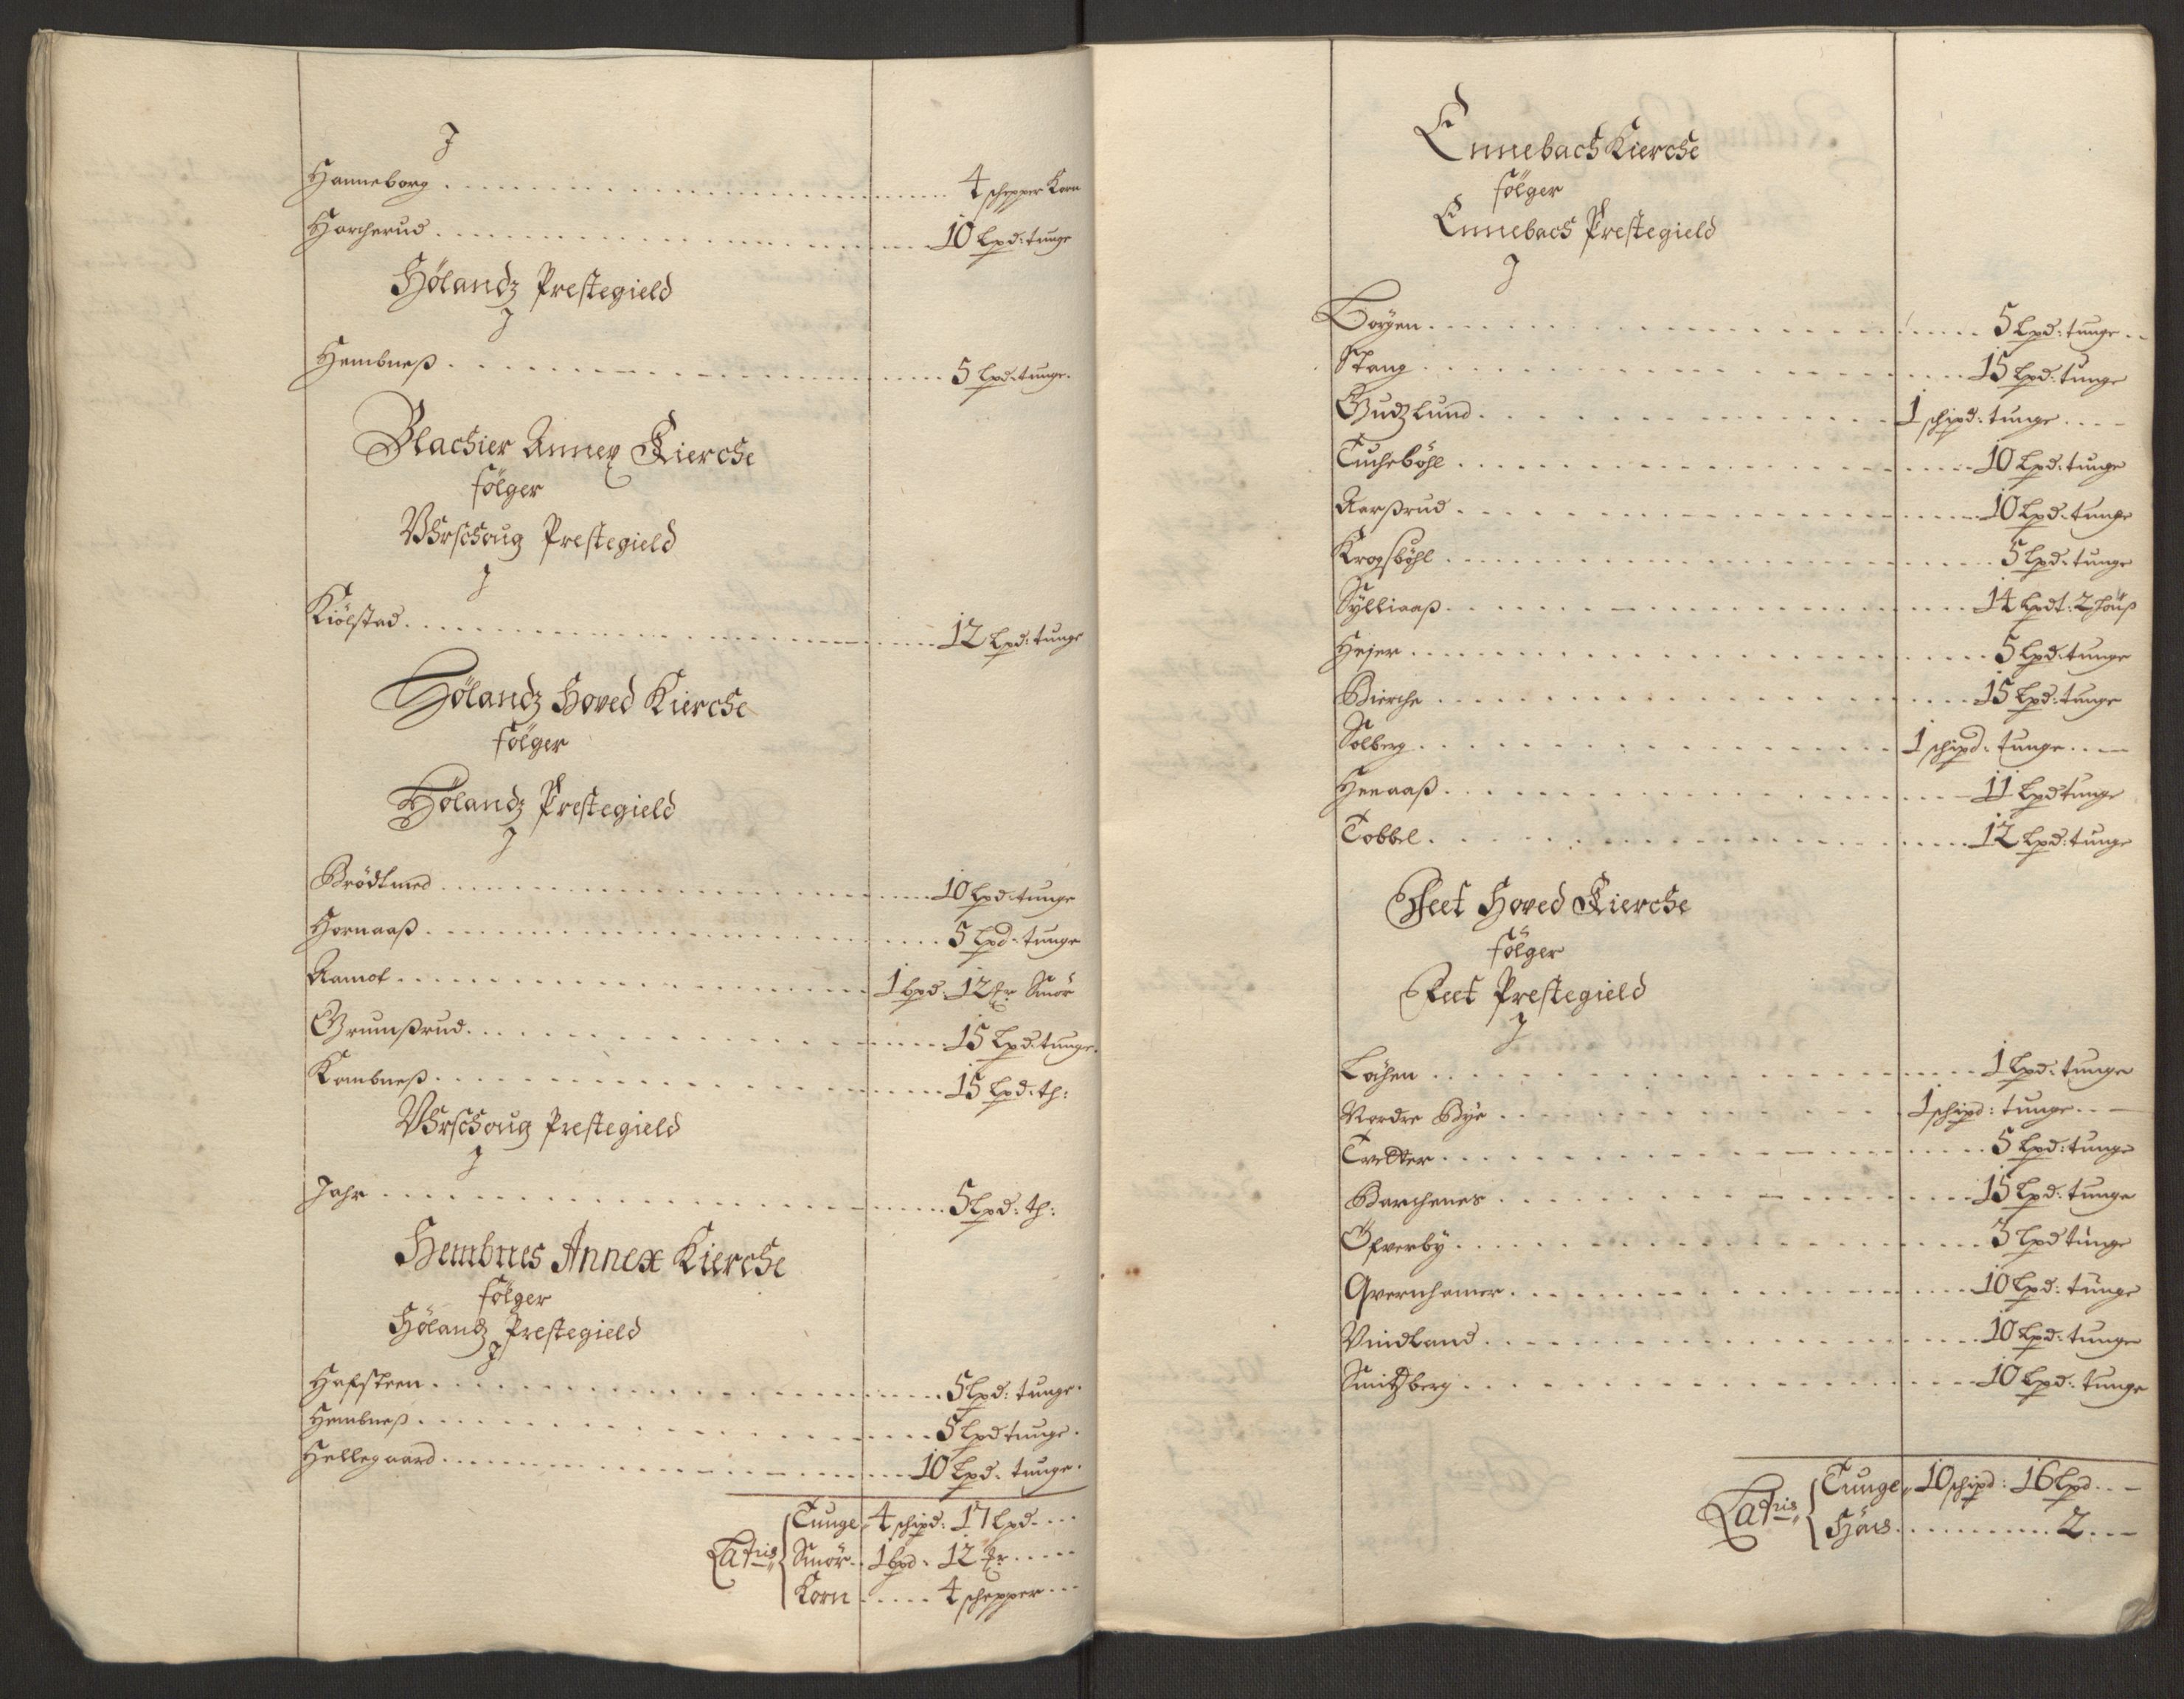 J
Hanneborg . . . 4 schepper Korn
Harcherud . . . 10 Lpd: tunge
Hölandz Prestegield
J
Hembneß . . . 5 Lpd: tunge.
Blachier Annex Kierche
fölger
Uhrschoug Prestegield
J
Kiölstad . . . 12 Lpd: tunge
Hölandz Hoved Kierche
fölger
Hölandz Prestegield
J
Brödtmed . . . 10 Lpd: tunge
Hornaaß . . . 5 Lpd: tunge
Aamot . . . 1 bpd: 12 Smör
Grumßrud . . . 15 Lpd: tunge.
Kambneß . . . 15 Lpd: th:
Uhrschoug Prestegield
J
Jahr . . . 5 Lpd: th:
Hembnes Annex Kierche
fölger
Hölandz Prestegield
J
Hafsteen . . . 5 Lpd: tunge.
Hembneß . . . 5 Lpd tunge.
Hellegaard . . . 10 Lpd. tunge.
Latris
Tunge, 4 schipd: 17 Lpd. . .
Smör . . 1 bpd: 12 . . .
Korn . . . 4 schepper . . .
Ennebach Kierche
fölger
Ennebach Prestegield
J
Börgen . . . 5 Lpd: tunge . .
Stang . . . 15 Lpd: tunge
Gudzlund . . . 1 schipd: tunge . . .
Tuchebøhl . . . 10 Lpd: tunge
Aarßrud . . . 10 Lpd: tunge
Kropsbøhl . . . 5 Lpd: tunge
Sylliaaß . . . 14 Lpdt: 2 Höuß
Hejer . . . 5 Lpd: tunge
Bierche . . . 15 Lpd: tunge
Solberg . . . 1 schipd: tunge . . .
Heeaaß . . . 11 Lpd tunge
Tobbel . . . 12 Lpd: tunge
Feet Hoved Kierche
fölger
Feet Prestegield
J
Løhen . . . 1 Lpd: tunge
Nordre Bye . . . 1 schipd: tunge . . .
Tvetter . . . 5 Lpd: tunge
Barchenes . . . 15 Lpd: tunge
Öfverby . . . 3 Lpd tunge
Qvernhamer . . . 10 Lpd: tunge
Vindland . . . 10 Lpd: tunge
Smitzberg . . . 10 Lpd: tunge
Latris
Tunge, 10 schipd: 16 Lpd . . .
Höus . . . 2 . . .